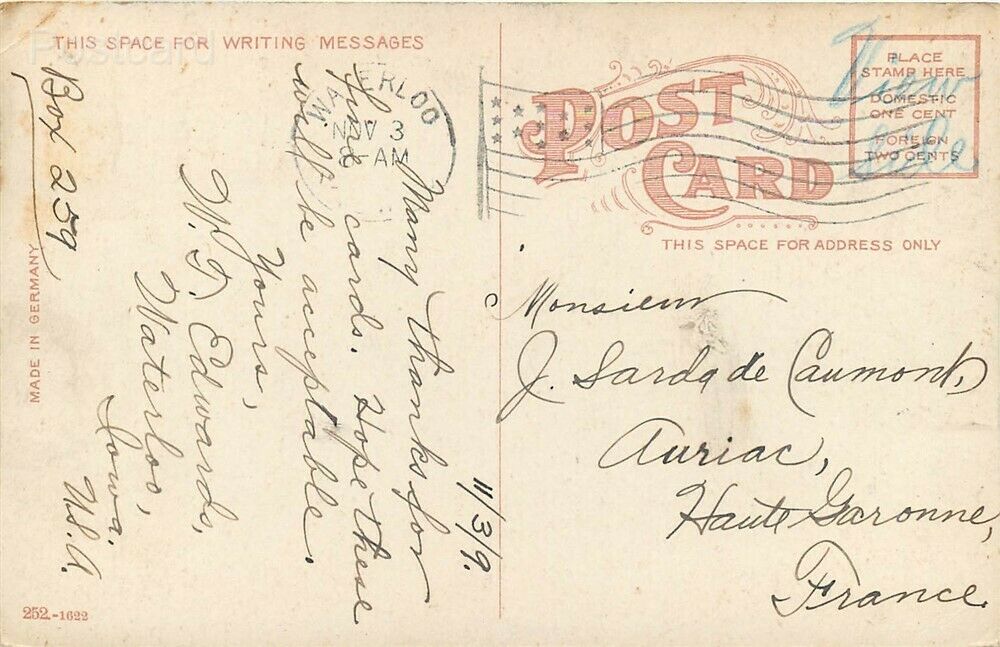 THIS SPACE FOR WRITING MESSAGES
Postcard
WATERLOO
NOV 3
AM
PLACE
STAMP HERE
DOMESTIC
ONE CENT
FOREIGN
TWO CENTS
View
Side
POST
CARD
THIS SPACE FOR ADDRESS ONLY
11/3/9.
Many thanks for
fine cards. Hope these
will be acceptable.
Yours,
W. T. Edwards,
Waterloo,
Iowa.
U.S.A.
Box 259
Monsieur
J. Sarda de Caumont,
Auriac,
Haute Garonne,
France.
MADE IN GERMANY
252.-1622